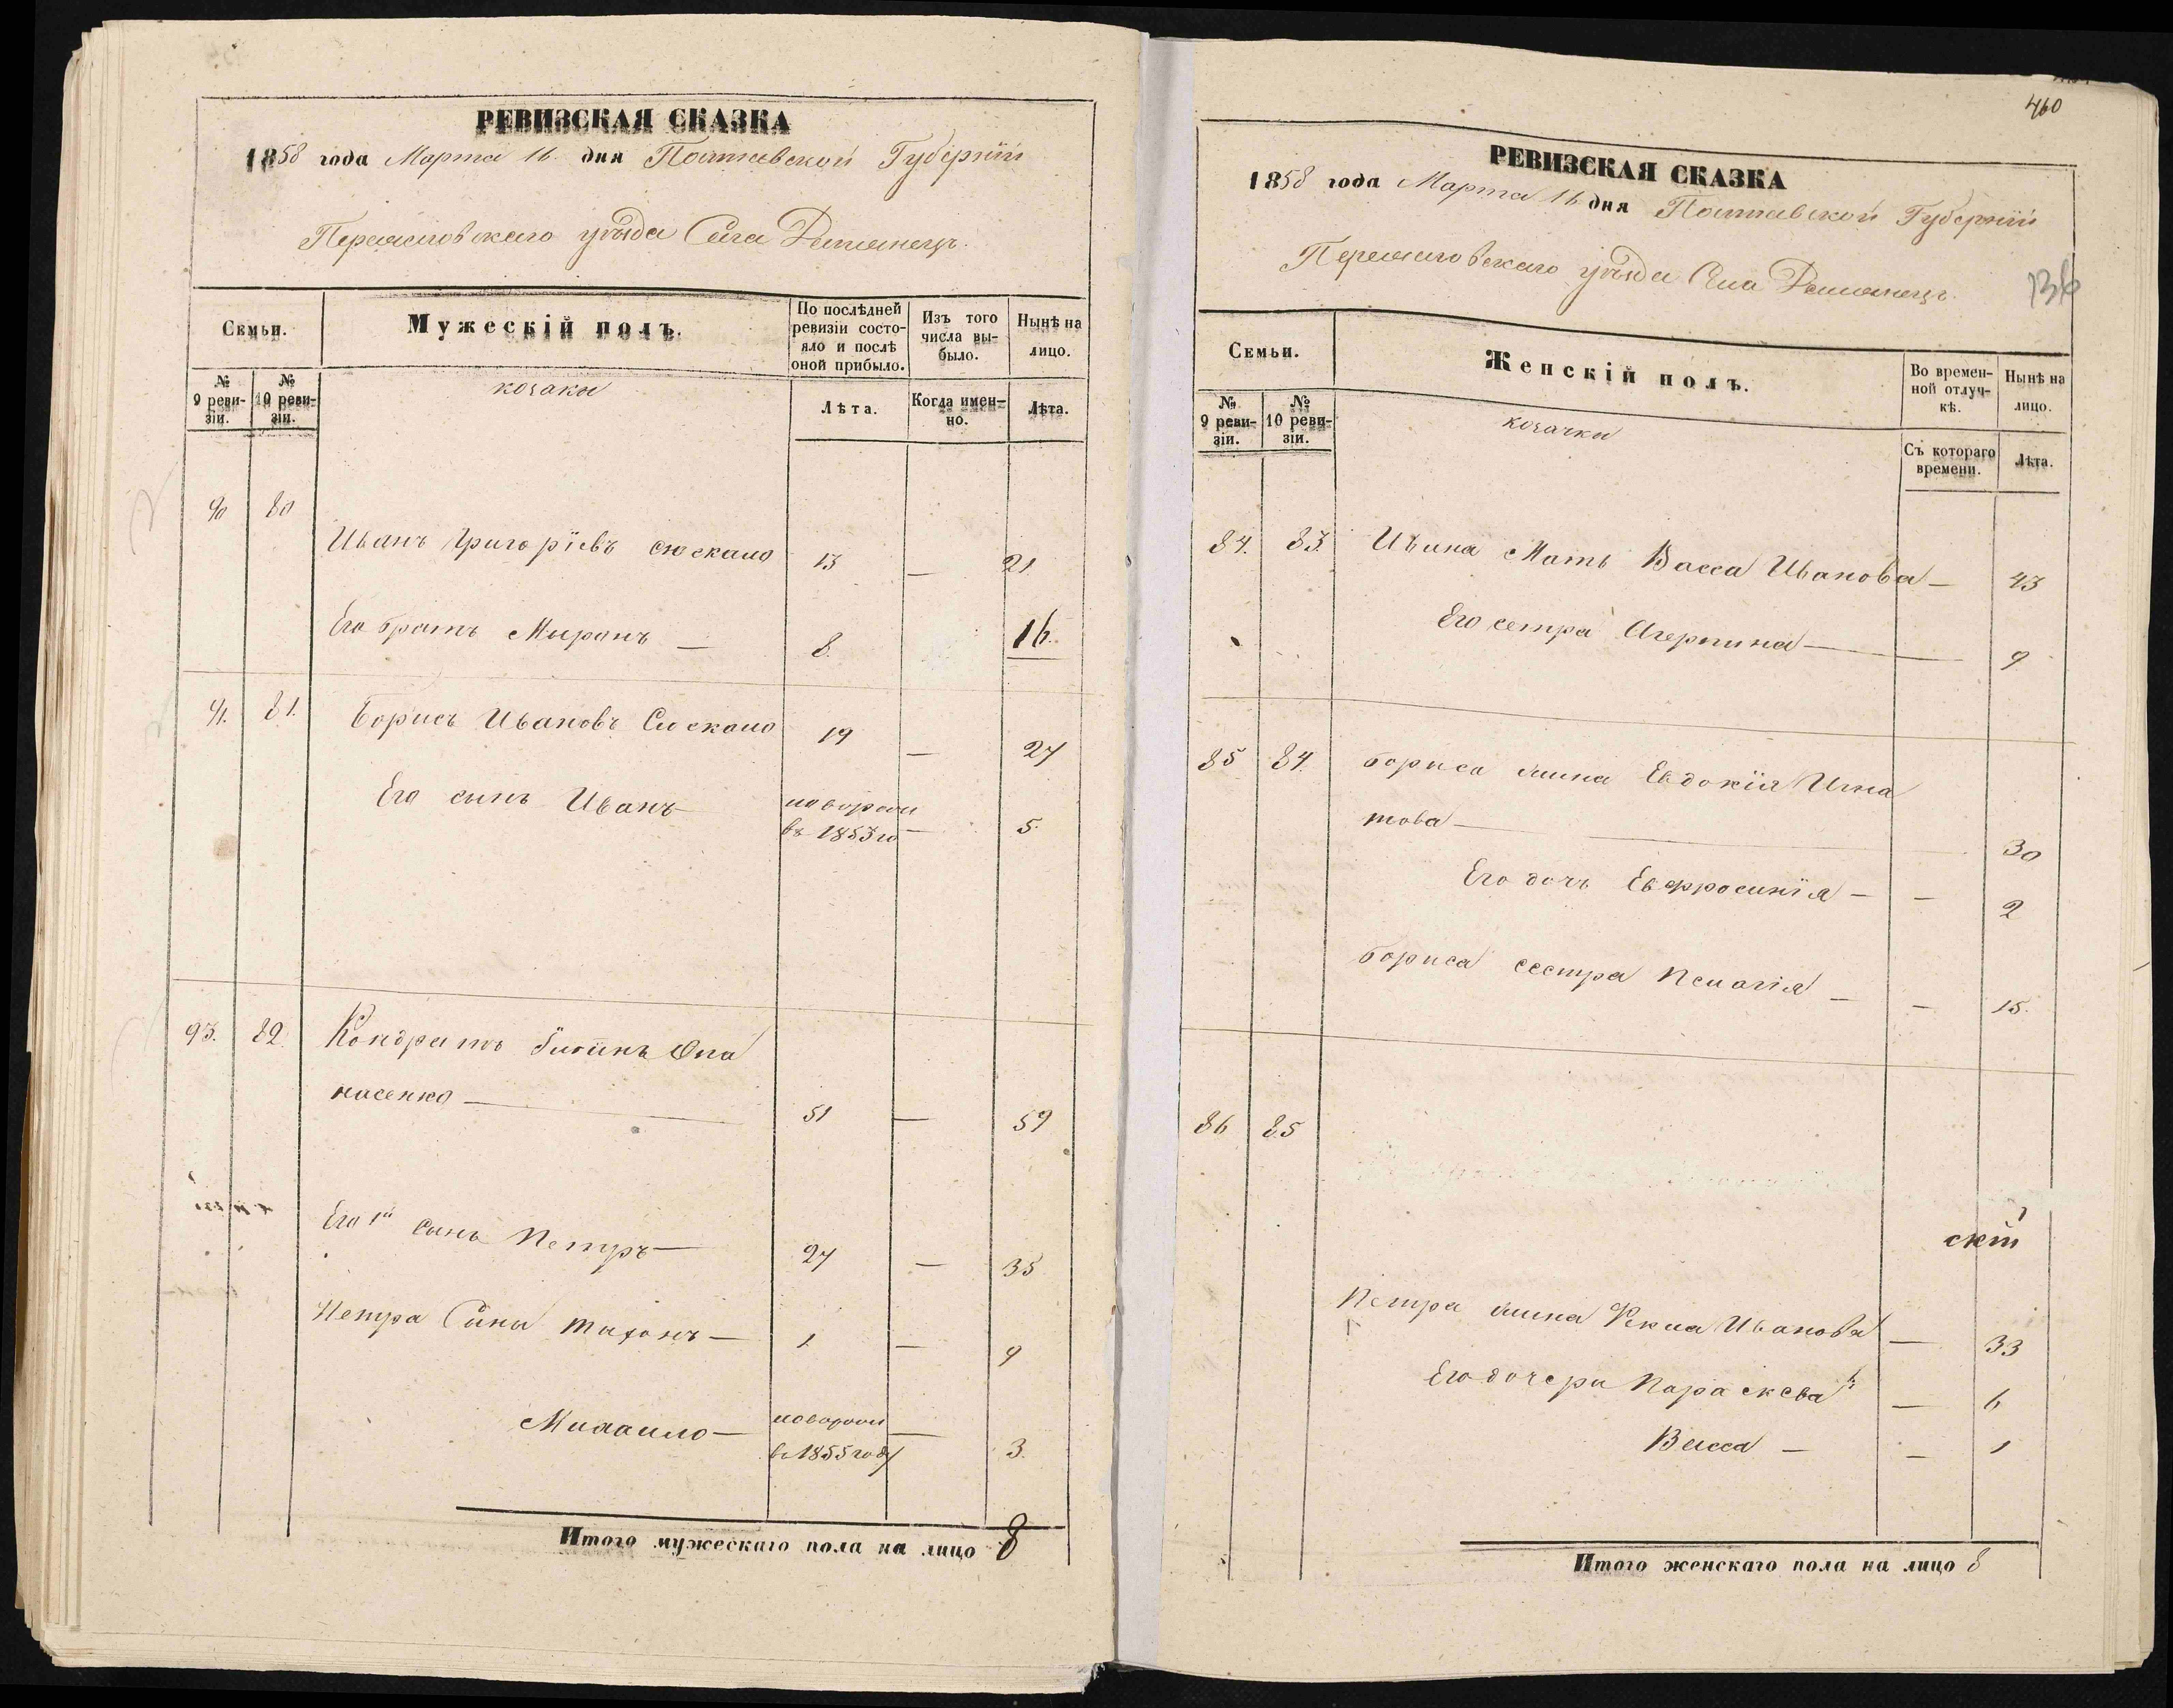 РЕВИЗСКАЯ СКАЗКА
1858 года Марта 16 дня Полтавской Губерніи
Переяславскаго уѣзда Села
Семьи.
Мужескій полъ.
По послѣдней ревизіи состояло и послѣ оной прибыло.
Изъ того числа выбыло.
Нынѣ на лицо.
№ 9 ревизіи.
№ 10 ревизіи.
козаки
Лѣта.
Когда именно.
Лѣта.
90 80
Иванъ Григоріевъ Сюскало 13 — 21
Его братъ Миронъ — 8. 16.
91. 81. Борисъ Ивановъ Сюскало 19 — 27
Его сынъ Иванъ новорож
въ 1853 го — 5.
93. 82. Кондратъ Опа
насенко — 51 — 59
Его 1й сынъ Петръ — 27 — 35
Петра Сыны Тихонъ — 1. — 9
Михаило — новорож —
въ 1855 году 3.
Итого мужескаго пола на лицо 8
460
РЕВИЗСКАЯ СКАЗКА
1858 года Марта 16 дня Полтавской Губерніи
Переяславскаго уѣзда Села
136
Семьи.
Женскій полъ.
Во временной отлучкѣ.
Нынѣ на лицо.
№ 9 ревизіи.
№ 10 ревизіи.
козачки
Съ котораго времени.
Лѣта.
84. 83. Ивана Мать Васса Иванова — 43
Его сестра Агерпина — 9
85 84. Бориса жина Евдокія Игна
това — 30
Его дочь Евфросинія — — 2
Бориса сестра Пелагія — — 15.
86 85
Петра жина Фекла Иванова — 33
Его дочери Параскева — 6
Васса — — 1
Итого женскаго пола на лицо 8